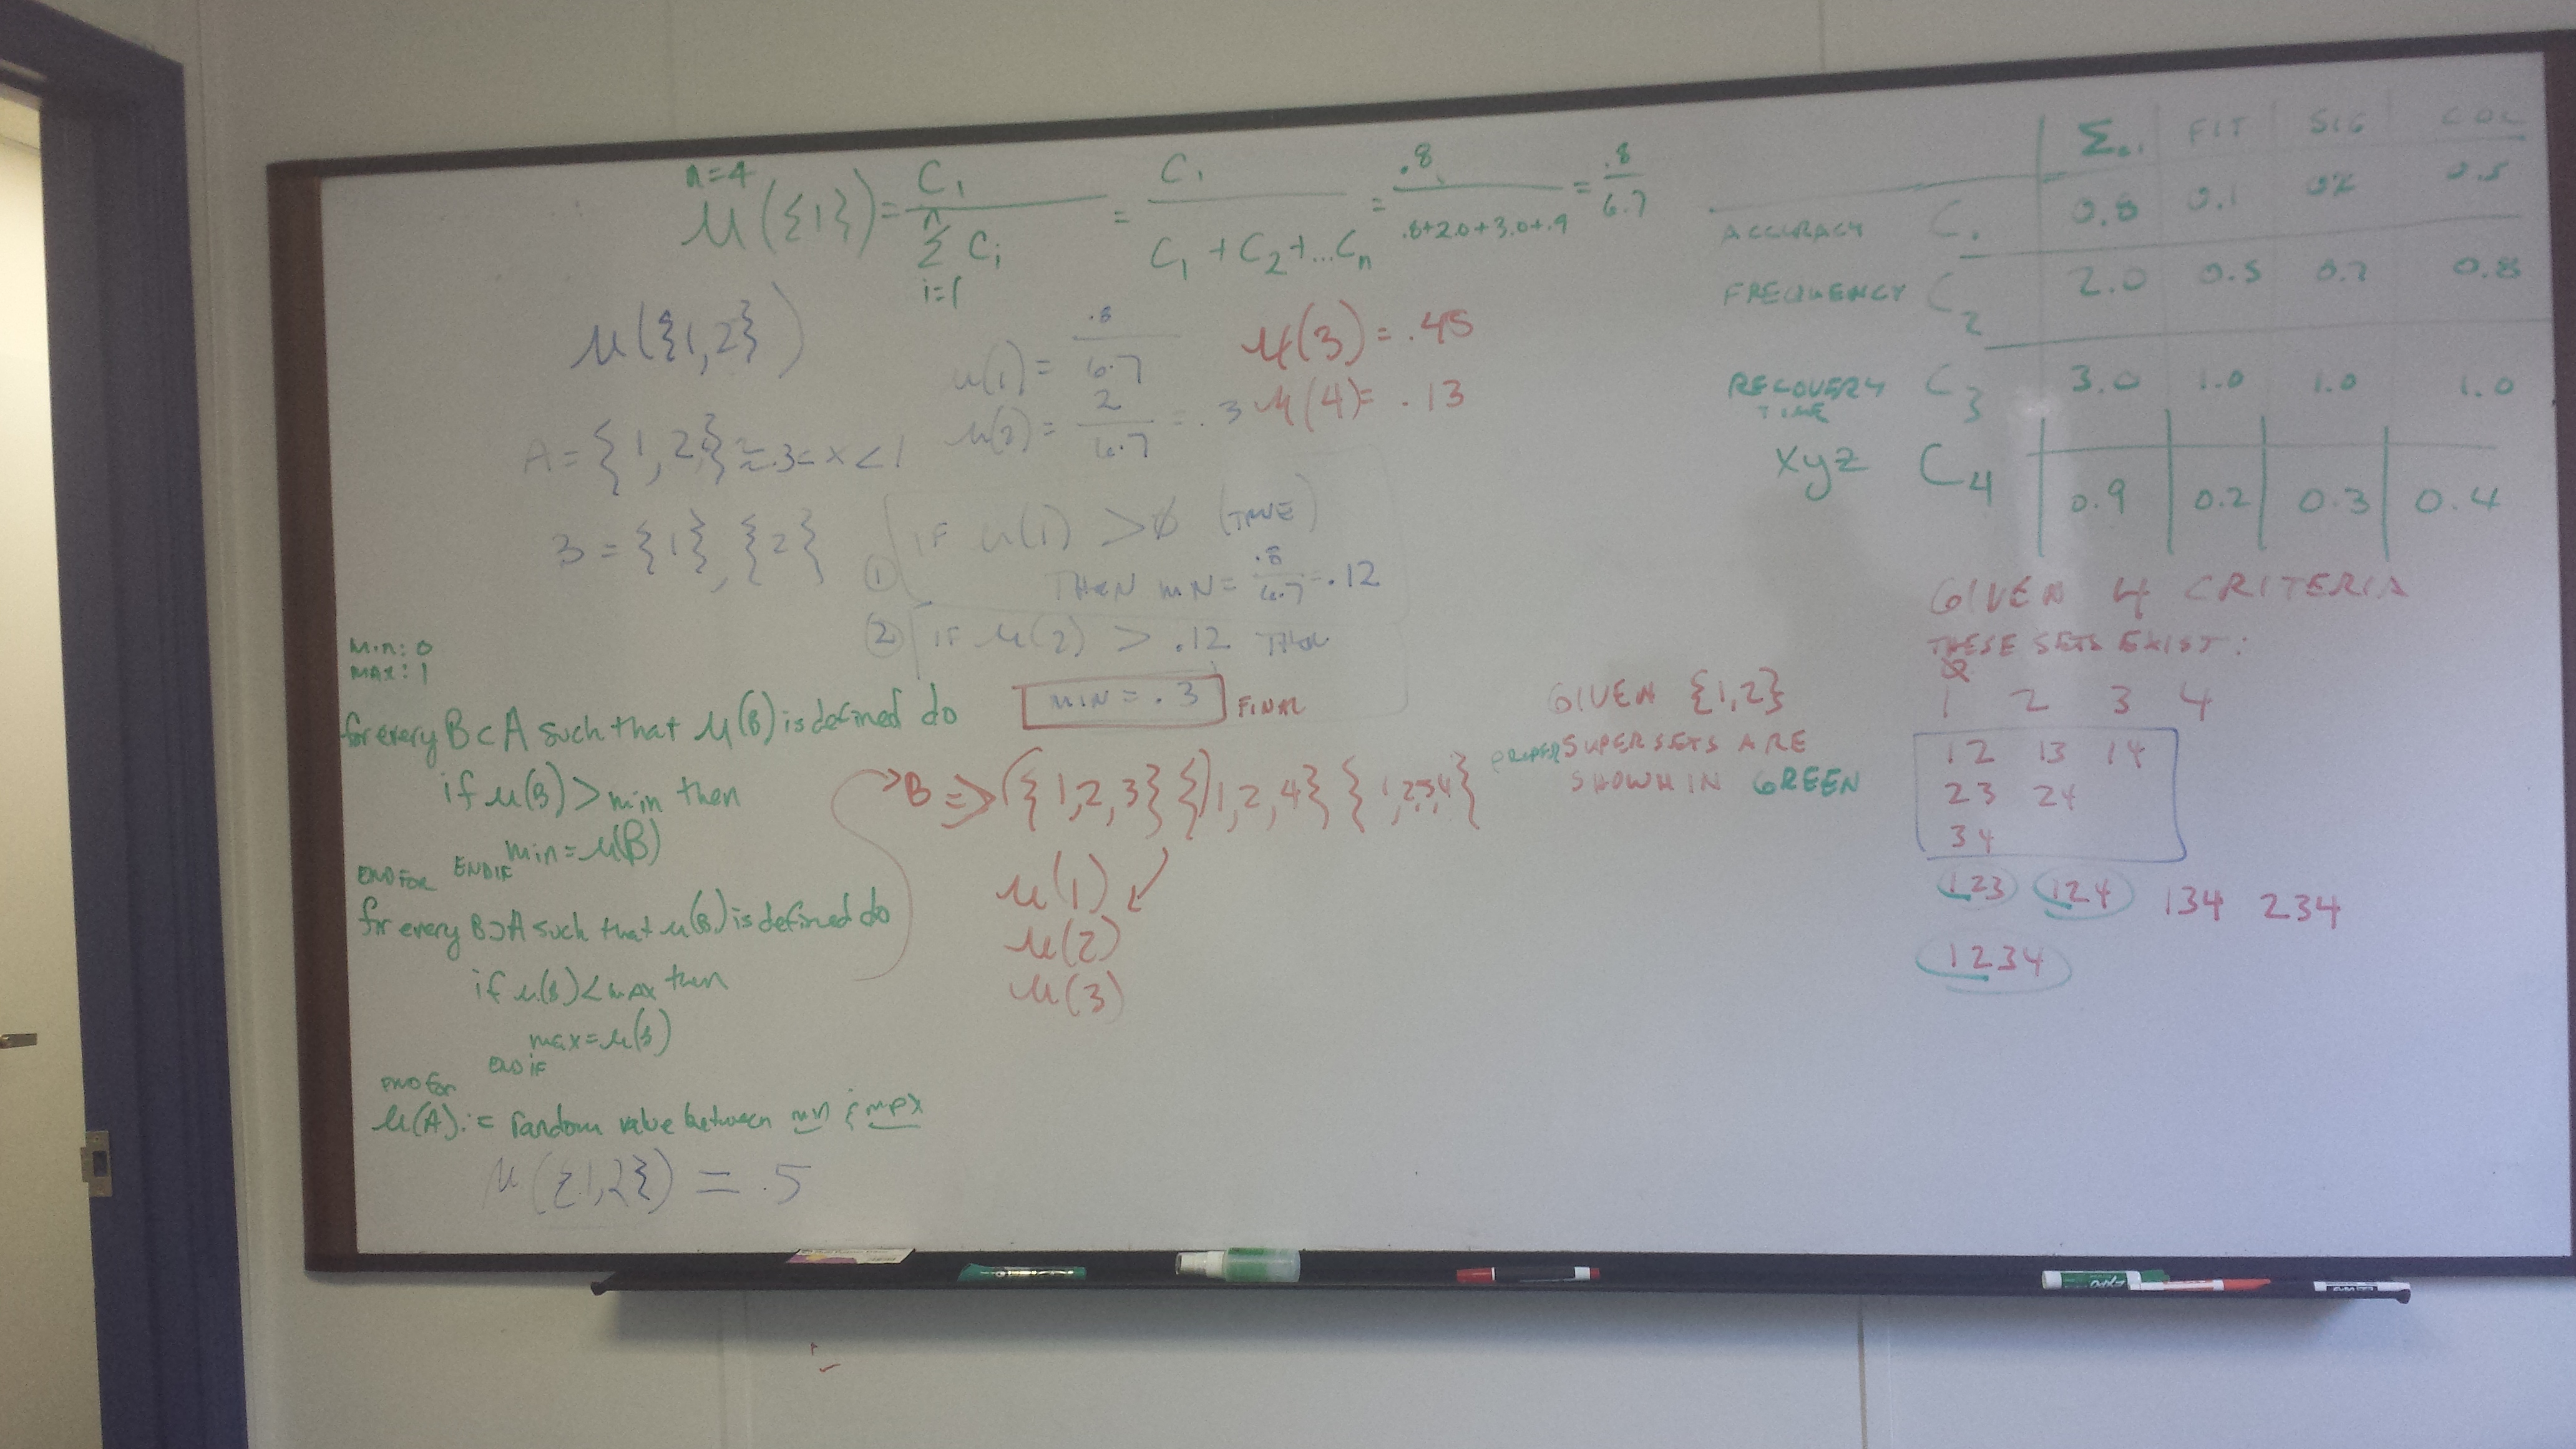 n=4
μ({1}) = C1 / n Σ i=1 Ci = C1 / C1 + C2 + ... Cn = .8 / .8+2.0+3.0+.9 = .8 / 6.7
μ({1,2})
μ(1) = .8 / 6.7
μ(2) = 2 / 6.7 = .3
μ(3) = .45
μ(4) = .13
A = {1,2} ≈ .3 < x < 1
B = {1}, {2}
① IF μ(1) > ∅ (TRUE)
THEN MIN = .8 / 6.7 = .12
② IF μ(2) > .12 THEN
MIN = .3 FINAL
Min: 0
MAX: 1
for every B ⊂ A such that μ(B) is defined do
if μ(B) > min then
min = μ(B)
END FOR ENDIF
for every B ⊃ A such that μ(B) is defined do
if μ(B) < max then
max = μ(B)
END IF
END FOR
μ(A) := random value between min & max
μ({1,2}) = .5
B => ({1,2,3} {)1,2,4} {1,2,3,4}
μ(1)
μ(2)
μ(3)
GIVEN {1,2}
PROPER SUPERSETS ARE
SHOWN IN GREEN
FIT SIG COL
ACCURACY C1 0.8 0.1 0.5
FREQUENCY C2 2.0 0.5 0.7 0.8
RECOVERY TIME C3 3.0 1.0 1.0 1.0
xyz C4 0.9 0.2 0.3 0.4
GIVEN 4 CRITERIA
THESE SETS EXIST:
1 2 3 4
12 13 14
23 24
34
123 124 134 234
1234